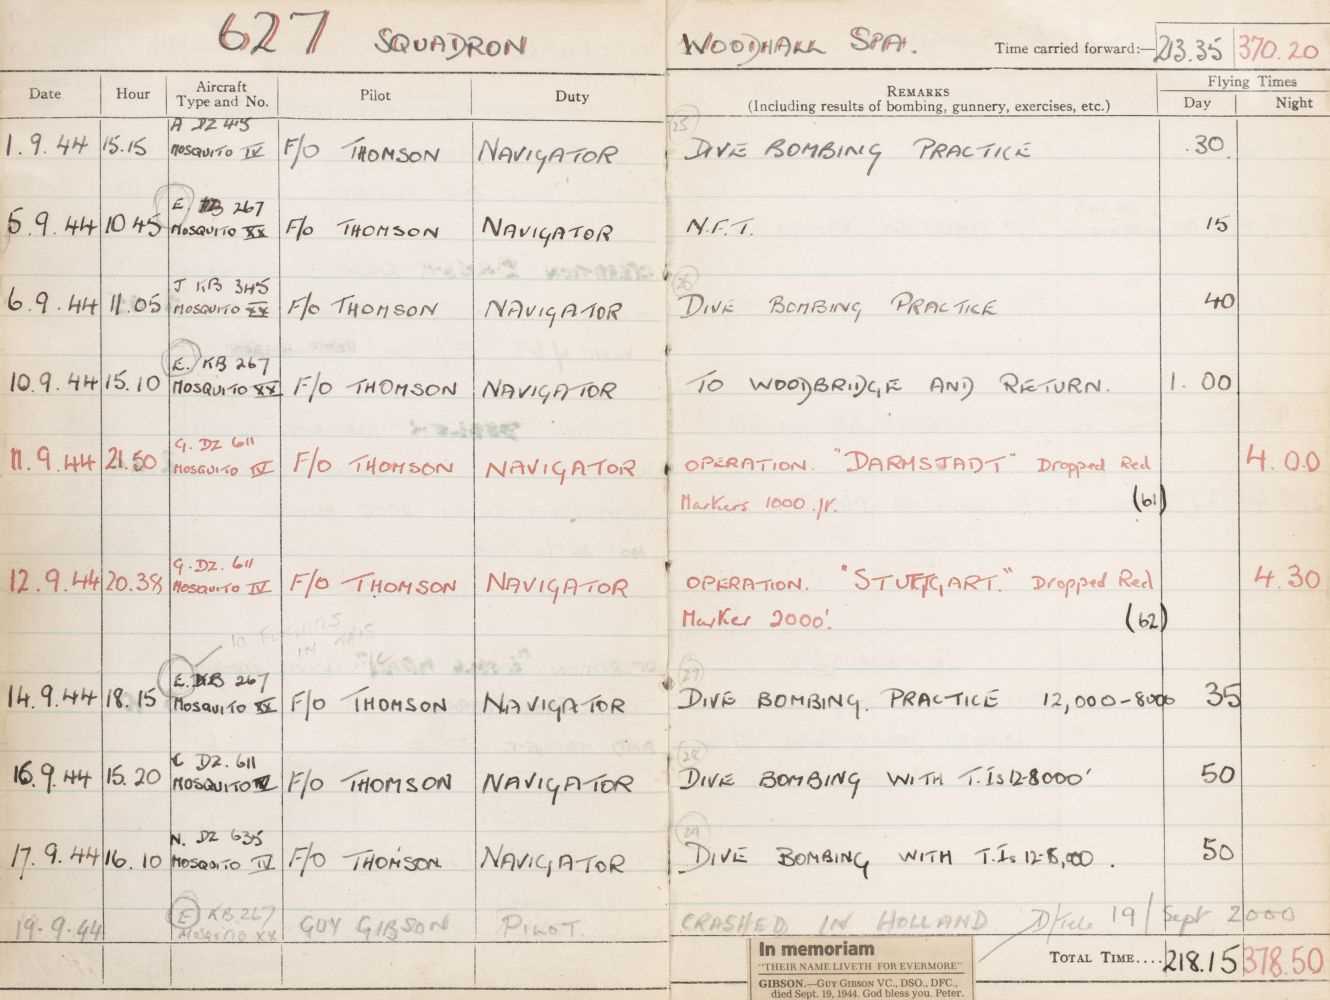 627 SQUADRON
WOODHALL SPA. Time carried forward:— 213.35 370.20
Date Hour Aircraft Type and No. Pilot Duty REMARKS (Including results of bombing, gunnery, exercises, etc.) Flying Times Day Night
A DZ 415 (25)
1.9.44 15.15 MOSQUITO IV F/O THOMSON NAVIGATOR DIVE BOMBING PRACTICE .30
E. KB 267
5.9.44 10 45 MOSQUITO XX F/O THOMSON NAVIGATOR N.F.T. 15
J KB 345 (26)
6.9.44 11.05 MOSQUITO XX F/O THOMSON NAVIGATOR DIVE BOMBING PRACTICE 40
E. KB 267
10.9.44 15.10 MOSQUITO XX F/O THOMSON NAVIGATOR TO WOODBRIDGE AND RETURN. 1.00
G. DZ 611
11.9.44 21.50 MOSQUITO IV F/O THOMSON NAVIGATOR OPERATION. "DARMSTADT" Dropped Red 4.00
Markers 1000 (61)
G. DZ. 611
12.9.44 20.38 MOSQUITO IV F/O THOMSON NAVIGATOR OPERATION. "STUTTGART." Dropped Red 4.30
Marker 2000'. (62)
E. KB 267 (27)
14.9.44 18.15 MOSQUITO XX F/O THOMSON NAVIGATOR DIVE BOMBING. PRACTICE 12,000-8000 35
DZ. 611 (28)
16.9.44 15.20 MOSQUITO IV F/O THOMSON NAVIGATOR DIVE BOMBING WITH T.Is 12-8000' 50
N. DZ 635 (29)
17.9.44 16.10 MOSQUITO IV F/O THOMSON NAVIGATOR DIVE BOMBING WITH T.Is 12-8,000. 50
E KB 267
19.9.44 MOSQUITO XX GUY GIBSON PILOT. CRASHED IN HOLLAND 19/Sept 2000
In memoriam
"THEIR NAME LIVETH FOR EVERMORE"
GIBSON.—GUY GIBSON VC., DSO., DFC.,
died Sept. 19, 1944. God bless you. Peter.
TOTAL TIME.... 218.15 378.50